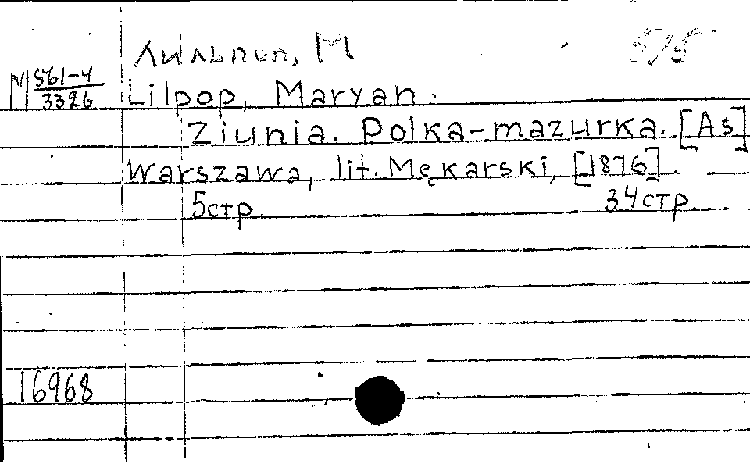 Лильпоп, М
М 561-4/3326
Lilpop, Maryan.
Ziunia. Polka-mazurka. [As]
Warszawa, lit. Mękarski, [1876]
5стр. 34стр.
16968